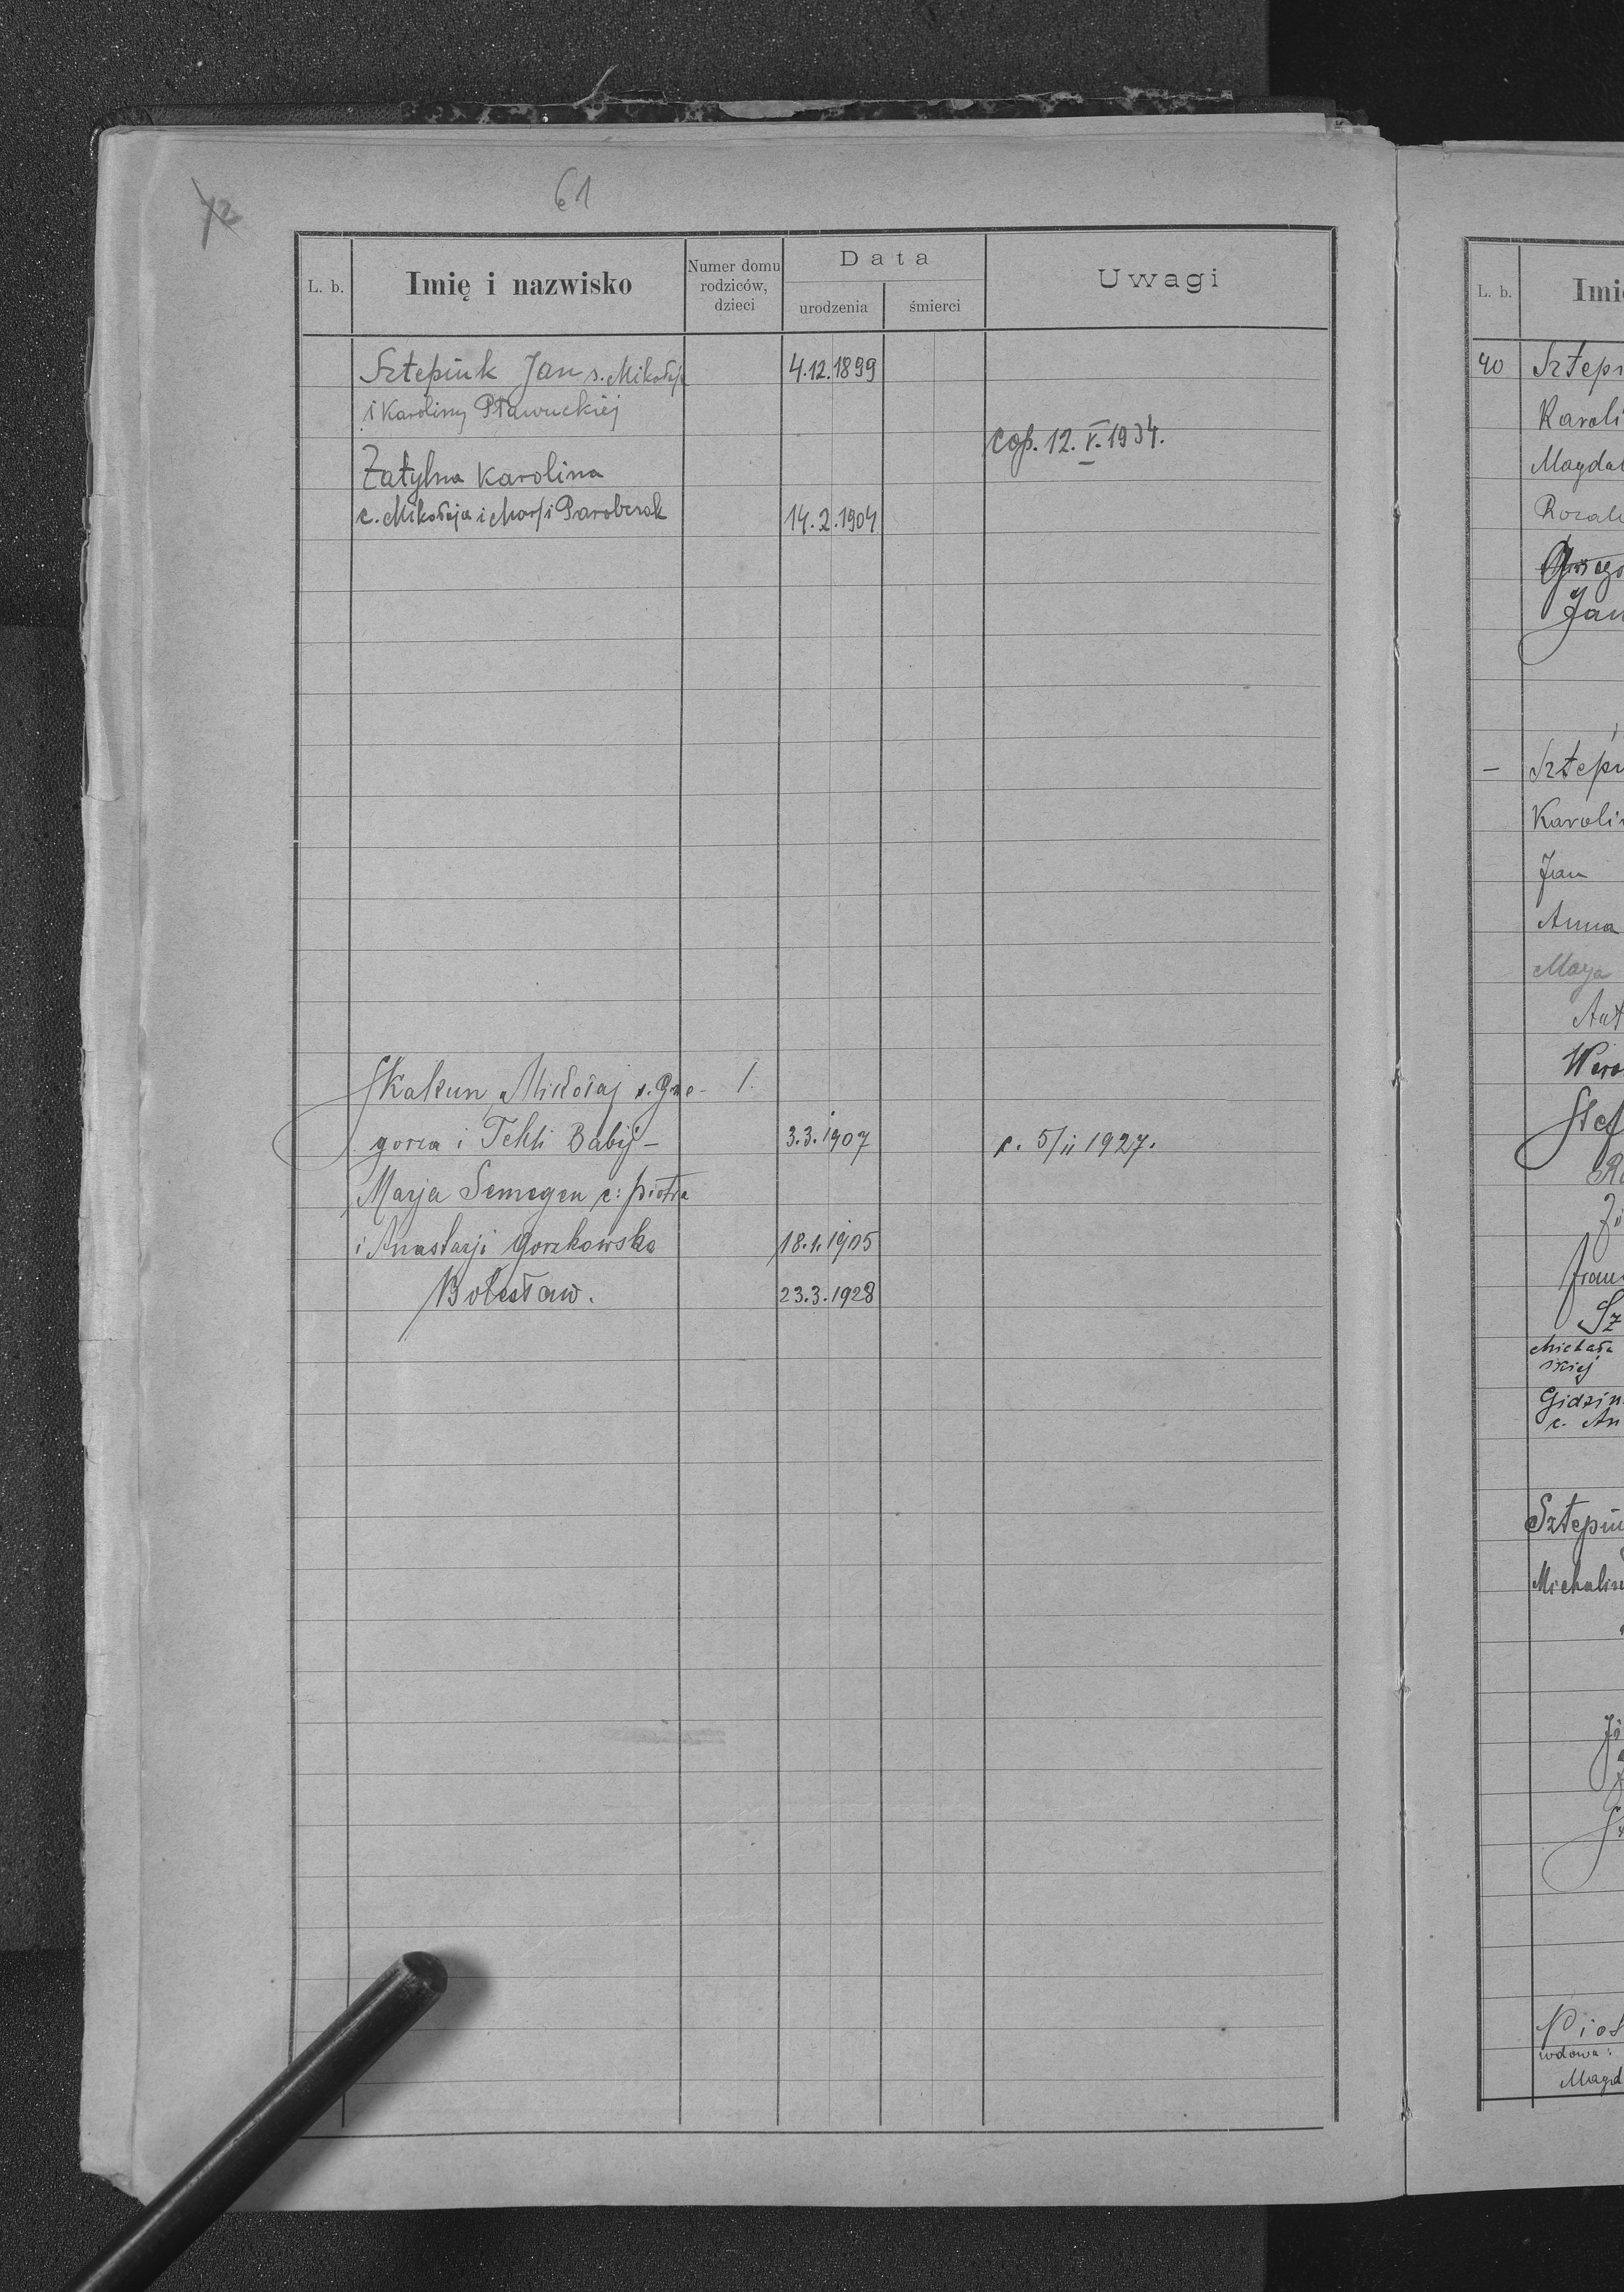 72
61
L. b.
Imię i nazwisko
Numer domu rodziców, dzieci
Data
urodzenia
śmierci
Uwagi
Sztepiuk Jan s. Mikołaja 4.12.1899
i Karoliny Pławuckiej
cop. 12. V. 1934.
Zatylna Karolina
c. Mikołaja i Marji Paroberak 14.2.1904
Skakun Mikołaj s. Grze- 1.
gorza i Tekli Babij - 3.3.1907 c. 5/ii 1927.
Marja Semegen c: Piotra
i Anastazji Gorzkowska 18.1.1905
Bolesław. 23.3.1928
L. b.
Imię
40 Sztepi
Karoli
Magdal
Rozali
Grzego
Jan
- Sztepi
Karolin
Jan
Anna
Marja
Ant
Wero
Stef
Fran
Sz
Michała
skiej
Gidzin
c. An
Sztepiu
Michalin
Piot
wdowa:
Magd